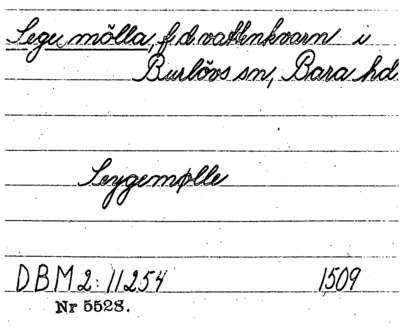 Segemölla, f d vattenkvarn i
Burlövs sn, Bara hd.
Seygemølle
DBM 2: 11254 1509
Nr 5528.